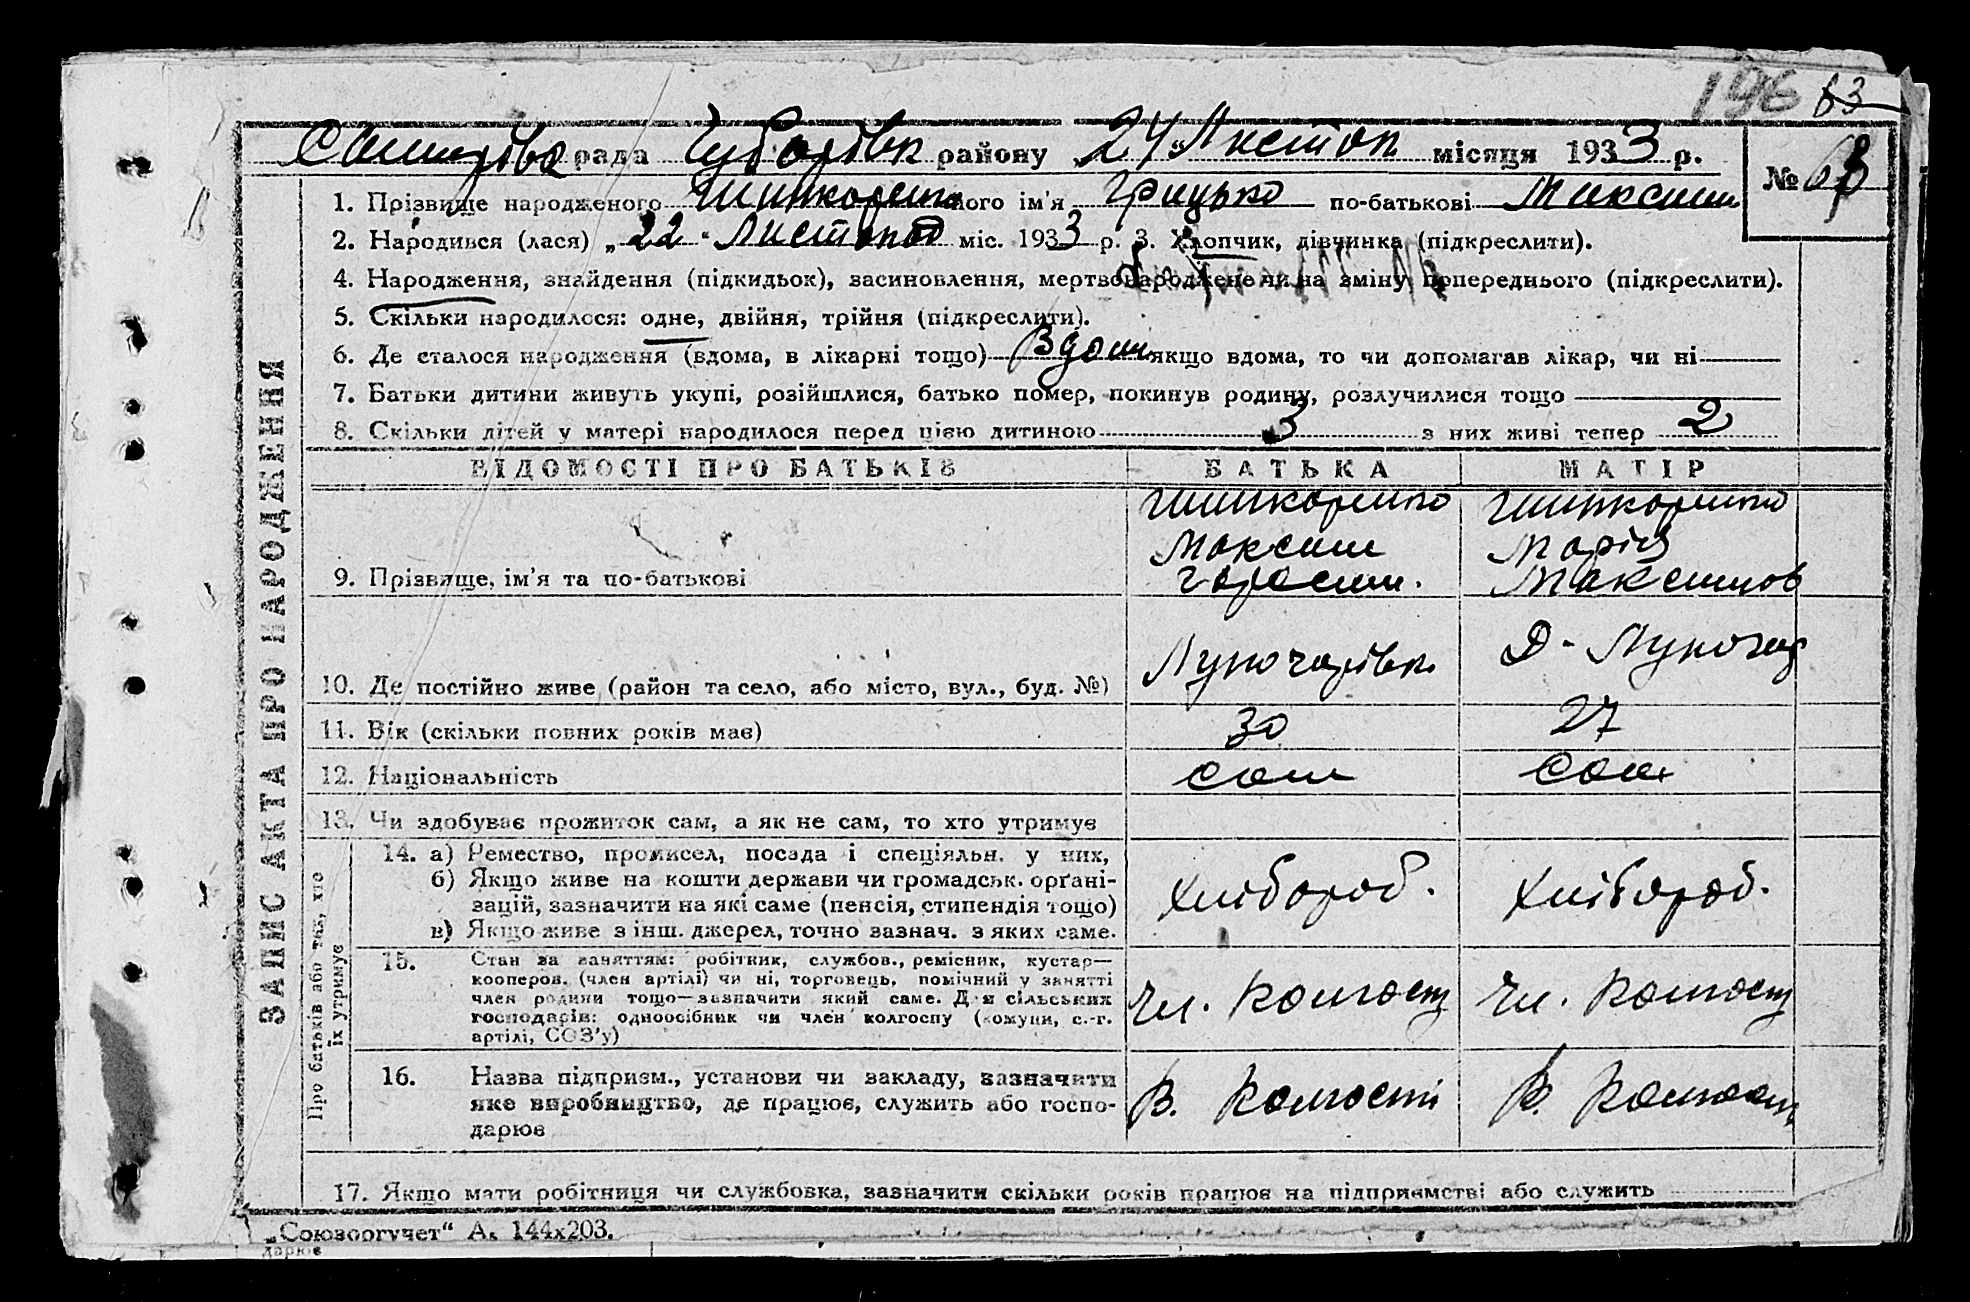 196 63
рада Чубарівк району 24 Листоп місяця 1933 р.
№ 68
1. Прізвище народженого Шинкоренко його ім'я Грицько по-батькові Максим
2. Народився (лася) „22" Листопад міс. 1933 р. 3. Хлопчик, дівчинка (підкреслити).
4. Народження, знайдення (підкидьок), засиновлення, мертвонароджене чи на зміну попереднього (підкреслити).
5. Скільки народилося: одне, двійня, трійня (підкреслити).
6. Де сталося народження (вдома, в лікарні тощо) Вдома якщо вдома, то чи допомагав лікар, чи ні
7. Батьки дитини живуть укупі, розійшлися, батько помер, покинув родину, розлучилися тощо
8. Скільки дітей у матері народилося перед цією дитиною 3 з них живі тепер 2
ЗАПИС АКТА ПРО НАРОДЖЕННЯ
ВІДОМОСТІ ПРО БАТЬКІВ БАТЬКА МАТІР
Шинкоренко Шинкоренко
Максим Марія
9. Прізвище, ім'я та по-батькові Гарасим. Максимов
10. Де постійно живе (район та село, або місто, вул., буд. №) Луночарівка
11. Вік (скільки повних років має) 30 27
12. Національність
13. Чи здобуває прожиток сам, а як не сам, то хто утримує
Про батьків або тих, хто
їх утримує
14. а) Ремество, промисел, посада і спеціяльн. у них,
б) Якщо живе на кошти держави чи громадськ. орґані-
зацій, зазначити на які саме (пенсія, стипендія тощо) Хлібороб. Хлібороб.
в) Якщо живе з інш. джерел, точно зазнач. з яких саме.
15. Стан за заняттям: робітник, службов., ремісник, кустар—
кооперов. (член артілі) чи ні, торговець, помічний у занятті
член родини тощо—зазначити який саме. Для сільських Чл. Колгоспу Чл. Колгоспу
господарів: одноосібник чи член колгоспу (комуни, с.-г.
артілі, СОЗ'у)
16. Назва підприєм., установи чи закладу, зазначити
яке виробництво, де працює, служить або госпо- В. Колгоспі В. Колгосп
дарює
17. Якщо мати робітниця чи службовка, зазначити скільки років працює на підприємстві або служить
„Союзоргучет" А. 144х203.
дарює